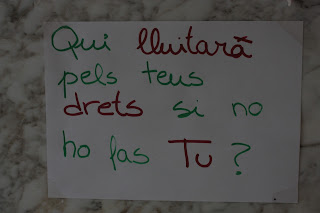 Qui lluitarã
pels teus
drets si no
ho fas Tu ?